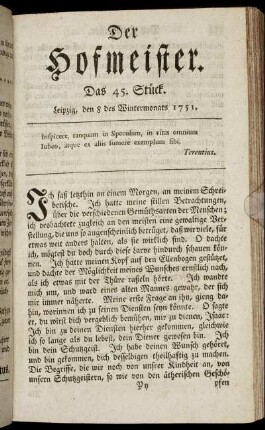 Der
Hofmeister.
Das 45. Stück.
Leipzig, den 8 des Wintermonats 1751.
Inspicere, tanquam in Speculum, in vitas omnium
Iubeo, atque ex aliis sumere exemplum sibi.
Terentius.
Ich saß letzthin an einem Morgen, an meinem Schrei-
betische. Ich hatte meine stillen Betrachtungen,
über die verschiedenen Gemüthsarten der Menschen;
ich beobachtete zugleich an den meisten eine gewaltige Ver-
stellung, die uns so augenscheinlich betrüget, daß wir viele, für
etwas weit anders halten, als sie wirklich sind. O dachte
ich, möchtest du doch durch diese harte hindurch schauen kön-
nen. Ich hatte meinen Kopf auf den Ellenbogen gestützet,
und dachte der Möglichkeit meines Wunsches ernstlich nach,
als ich etwas mit der Thüre raßeln hörte. Ich wandte
mich um, und ward eines alten Mannes gewahr, der sich
mir immer näherte. Meine erste Frage an ihn, gieng da-
hin, worinnen ich zu seinen Diensten seyn könnte. O sagte
er, du wirst dich vergeblich bemühen, mir zu dienen, Isaac:
Ich bin zu deinen Diensten hierher gekommen, gleichwie
ich so lange als du lebest, dein Diener gewesen bin. Ich
bin dein Schutzgeist. Ich habe deinen Wunsch gehöret,
und bin gekommen, dich desselbigen theilhaftig zu machen.
Die Begriffe, die wir noch von unsrer Kindheit an, von
unsern Schutzgeistern, so wie von den ätherischen Geschö-
Yy pfen